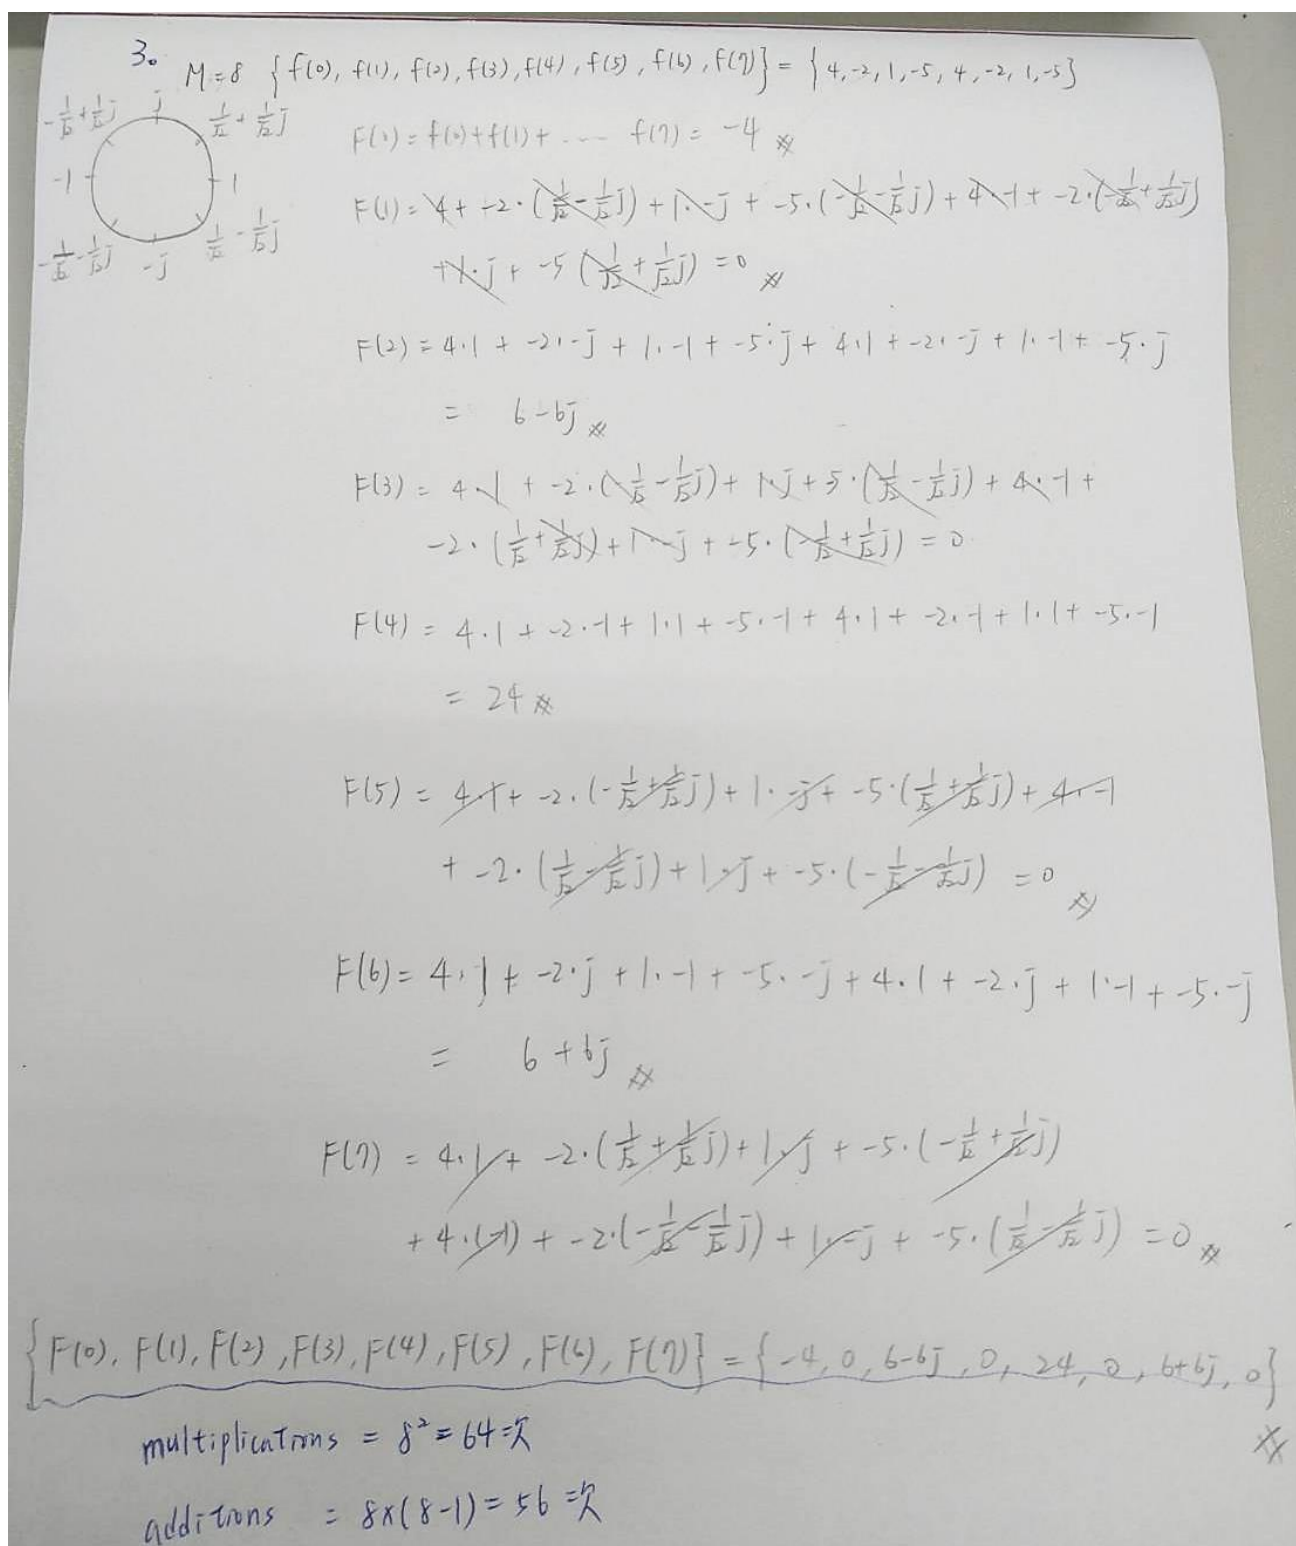 3.
M=8 {f(0), f(1), f(2), f(3), f(4), f(5), f(6), f(7)} = {4,-2,1,-5,4,-2,1,-5}
-1/√2+1/√2j j 1/√2+1/√2j
-1 1
-1/√2-1/√2j -j 1/√2-1/√2j
F(0) = f(0)+f(1)+ ---- f(7) = -4
F(1) = 4 + -2·(1/√2-1/√2j) + 1·-j + -5·(-1/√2-1/√2j) + 4·-1 + -2·(-1/√2+1/√2j)
+1·j + -5(1/√2+1/√2j) = 0
F(2) = 4·1 + -2·-j + 1·-1 + -5·j + 4·1 + -2·-j + 1·-1 + -5·j
= 6-6j
F(3) = 4·1 + -2·(-1/√2-1/√2j) + 1·j + 5·(1/√2-1/√2j) + 4·-1 +
-2·(1/√2+1/√2j) + 1·-j + -5·(-1/√2+1/√2j) = 0
F(4) = 4·1 + -2·-1 + 1·1 + -5·-1 + 4·1 + -2·-1 + 1·1 + -5·-1
= 24
F(5) = 4·1 + -2·(-1/√2+1/√2j) + 1·-j + -5·(1/√2+1/√2j) + 4·-1
+ -2·(1/√2-1/√2j) + 1·j + -5·(-1/√2-1/√2j) = 0
F(6) = 4·1 + -2·j + 1·-1 + -5·-j + 4·1 + -2·j + 1·-1 + -5·-j
= 6+6j
F(7) = 4·1 + -2·(1/√2+1/√2j) + 1·j + -5·(-1/√2+1/√2j)
+ 4·(-1) + -2·(-1/√2-1/√2j) + 1·-j + -5·(1/√2-1/√2j) = 0
{F(0), F(1), F(2), F(3), F(4), F(5), F(6), F(7)} = {-4, 0, 6-6j, 0, 24, 0, 6+6j, 0}
multiplications = 8² = 64次
additions = 8x(8-1) = 56次